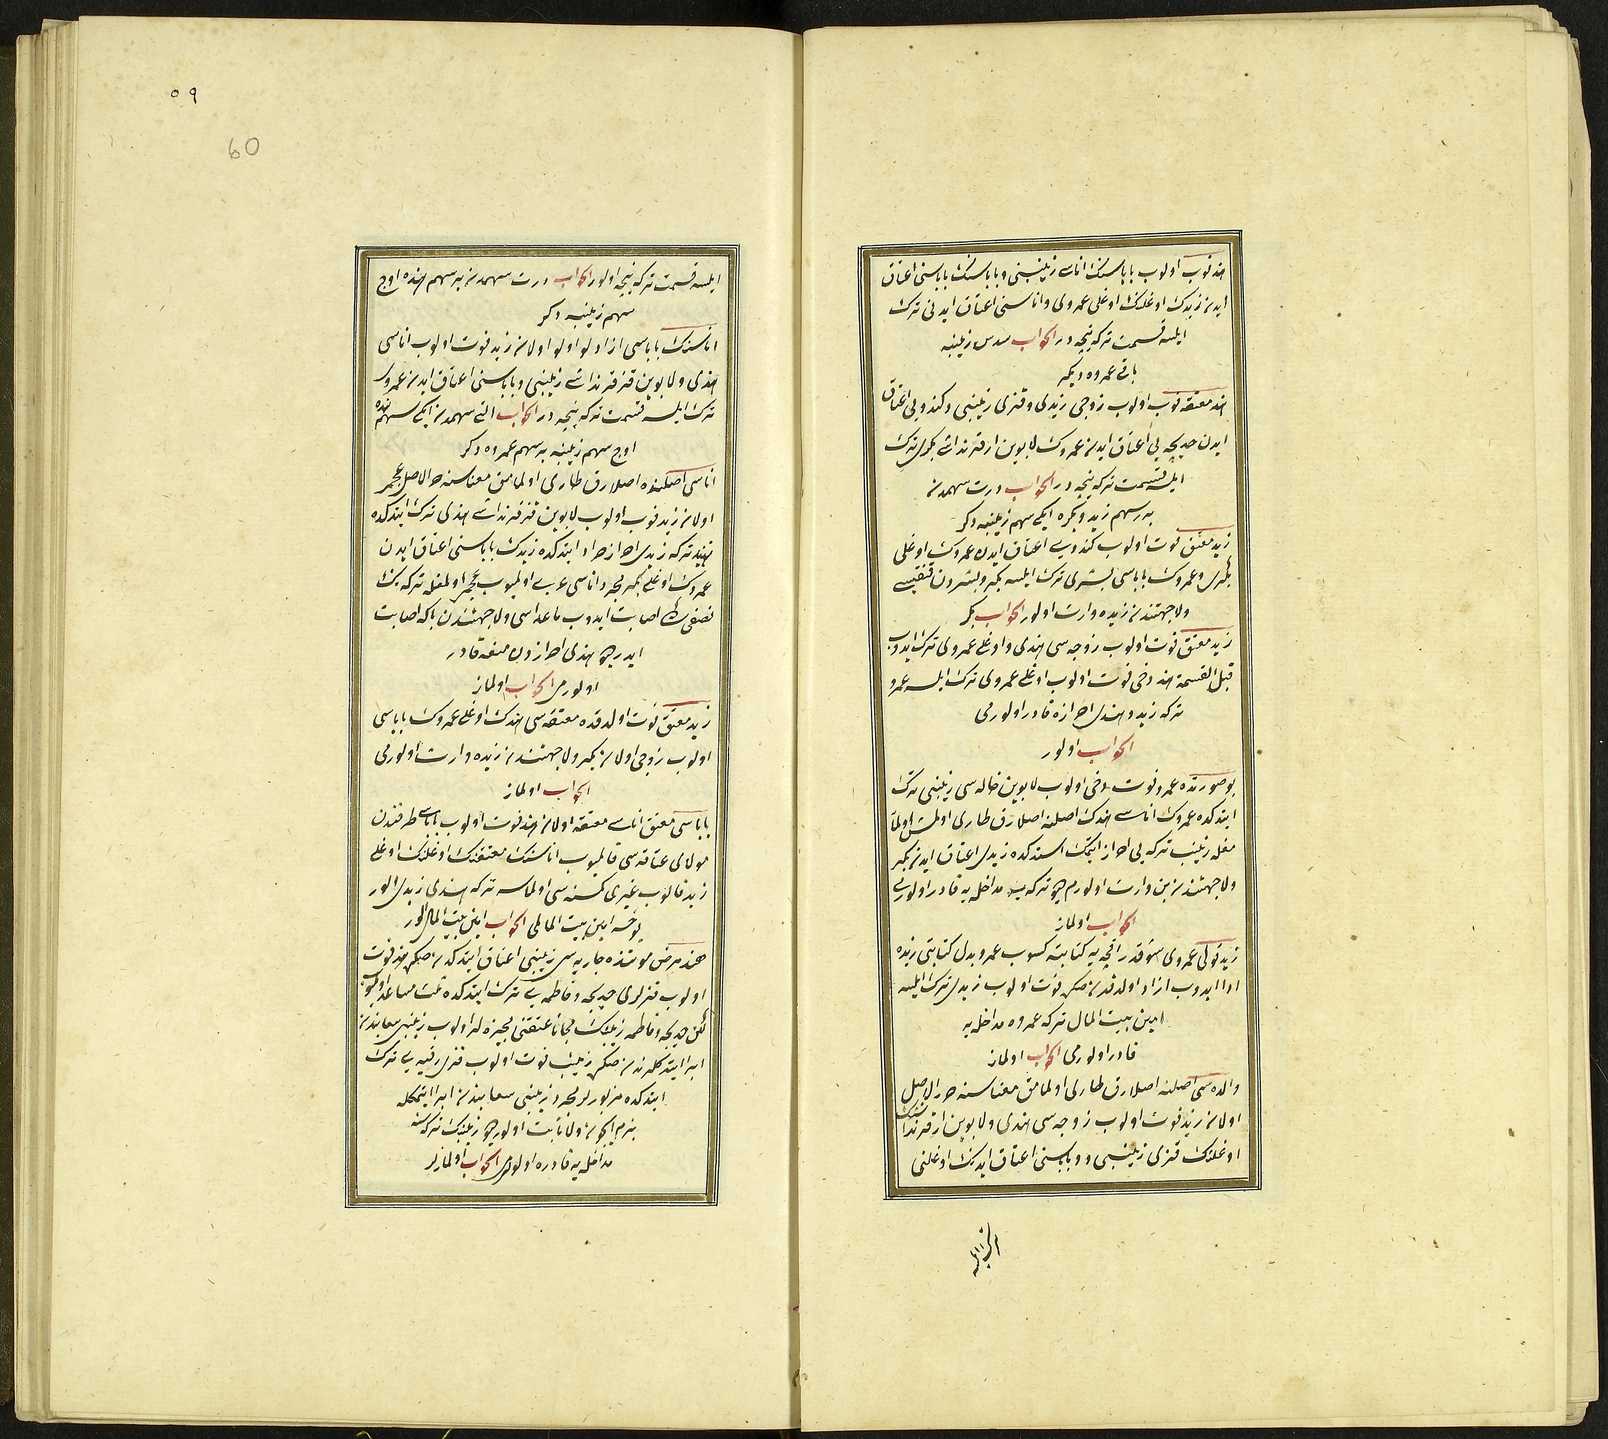 هند فوت اولوب باباسنك اناسى زينبى و باباسنك باباسنى اعتاق
ايدن زيدك اوغلنك اوغلى عمروى و اناسنى اعتاق ايدنى ترك
ايلسه قسمت تركه نيجه در الجواب سدس زينبه
باقى عمروه ديكر
هند معتقه فوت اولوب زوجى زيدى و قزى زينبى و كندويى اعتاق
ايدن خديجه يى اعتاق ايدن عمروك لابوين ار قرنداشى بكرى ترك
ايلسه قسمت تركه نيجه در الجواب درت سهمدن
بر سهم زيد و بكره ايكى سهم زينبه ديكر
زيد معتق فوت اولوب كندويى اعتاق ايدن عمروك اوغلى
بكرى و عمروك باباسى بشرى ترك ايلسه بكر و بشردن قنقيسى
ولا جهتندن زيده وارث اولور الجواب بكر
زيد معتق فوت اولوب زوجه سى هندى و اوغلى عمروى ترك ايدوب
قبل القسمة هند دخى فوت اولوب اوغلى عمروى ترك ايلسه عمرو
تركه زيد و هندى احرازه قادر اولورمى
الجواب اولور
بو صورتده عمرو فوت دخى اولوب لابوين خاله سى زينبى ترك
ايتدكده عمروك اناسى هندك اصلنه اصلا رق طارى اولمش اولما
مغله زينب تركه يى احراز ايتمك استدكده زيدى اعتاق ايدن بكر
ولا جهتندن بن وارث اولورم ديو تركه يه مداخله يه قادر اولورمى
الجواب اولماز
زيد قولى عمروى شو قدر اقچه يه كتابته كسوب عمرو بدل كتابتى زيده
ادا ايدوب ازاد اولدقدن صكره فوت اولوب زيدى ترك ايلسه
امين بيت المال تركه عمروه مداخله يه
قادر اولورمى الجواب اولماز
والده سى اصلنه اصلا رق طارى اولمامق معناسنه حر الاصل
اولان زيد فوت اولوب زوجه سى هندى و لابوين ار قرنداشنك
اوغلنك قزى زينبى و باباسنى اعتاق ايدنك اوغلنى
ترك
٥٩
60
ايلسه قسمت تركه نيجه اولور الجواب درت سهمدن بر سهم هنده اوج
سهم زينبه ديكر
اناسنك باباسى ازادلو اولو اولان زيد فوت اولوب اناسى
هندى و لابوين قز قرنداشى زينبى و باباسنى اعتاق ايدن عمروى
ترك ايلسه قسمت تركه نيجه در الجواب التى سهمدن ايكى سهم هنده
اوج سهم زينبه بر سهم عمروه ديكر
اناسى اصلنده اصلا رق طارى اولمامق معناسنه حر الاصل عجم
اولان زيد فوت اولوب لابوين قز قرنداشى هندى ترك ايتدكده
هند تركه زيدى احراز مراد ايتدكده زيدك باباسنى اعتاق ايدن
عمروك اوغلى بكر مجرد اناسى عربى اولميوب عجم اولمغله تركه نك
نصفى سكا اصابت ايدوب ماعداسى ولا جهتندن بكا اصابت
ايدر ديو هندى احرازدن منعه قادر
اولورمى الجواب اولماز
زيد معتق فوت اولدقده معتقه سى هندك اوغلى عمروك باباسى
اولوب زوجى اولان بكر ولا جهتندن زيده وارث اولورمى
الجواب اولماز
باباسى معتق اناسى معتقه اولان هند فوت اولوب باباسى طرفندن
مولاى عتاقه سى قالميوب اناسنك معتقنك اوغلنك اوغلى
زيد قالوب غيرى كمسنه سى اولماسه تركه هندى زيدمى الور
يوخسه امين بيت المالمى الجواب امين بيت المال الور
هند مرض موتنده جاريه سى زينبى اعتاق ايتدكدن صكره هند فوت
اولوب قزلرى خديجه و فاطمه يى ترك ايتدكده ثلث مساعد اولميوب
لكن خديجه و فاطمه زينبك مجانا عتقنى مجيزه لر اولوب زينبى سعايتدن
ابرا ايتدكلرندن صكره زينب فوت اولوب قزى رقيه يى ترك
ايتدكده مزبورلر مجرد زينبى سعايتدن ابرا ايتمكله
بزم ايچون ولا ثابت اولور ديو زينبك تركه سنه
مداخله يه قادره اولورلرمى الجواب اولمازلر